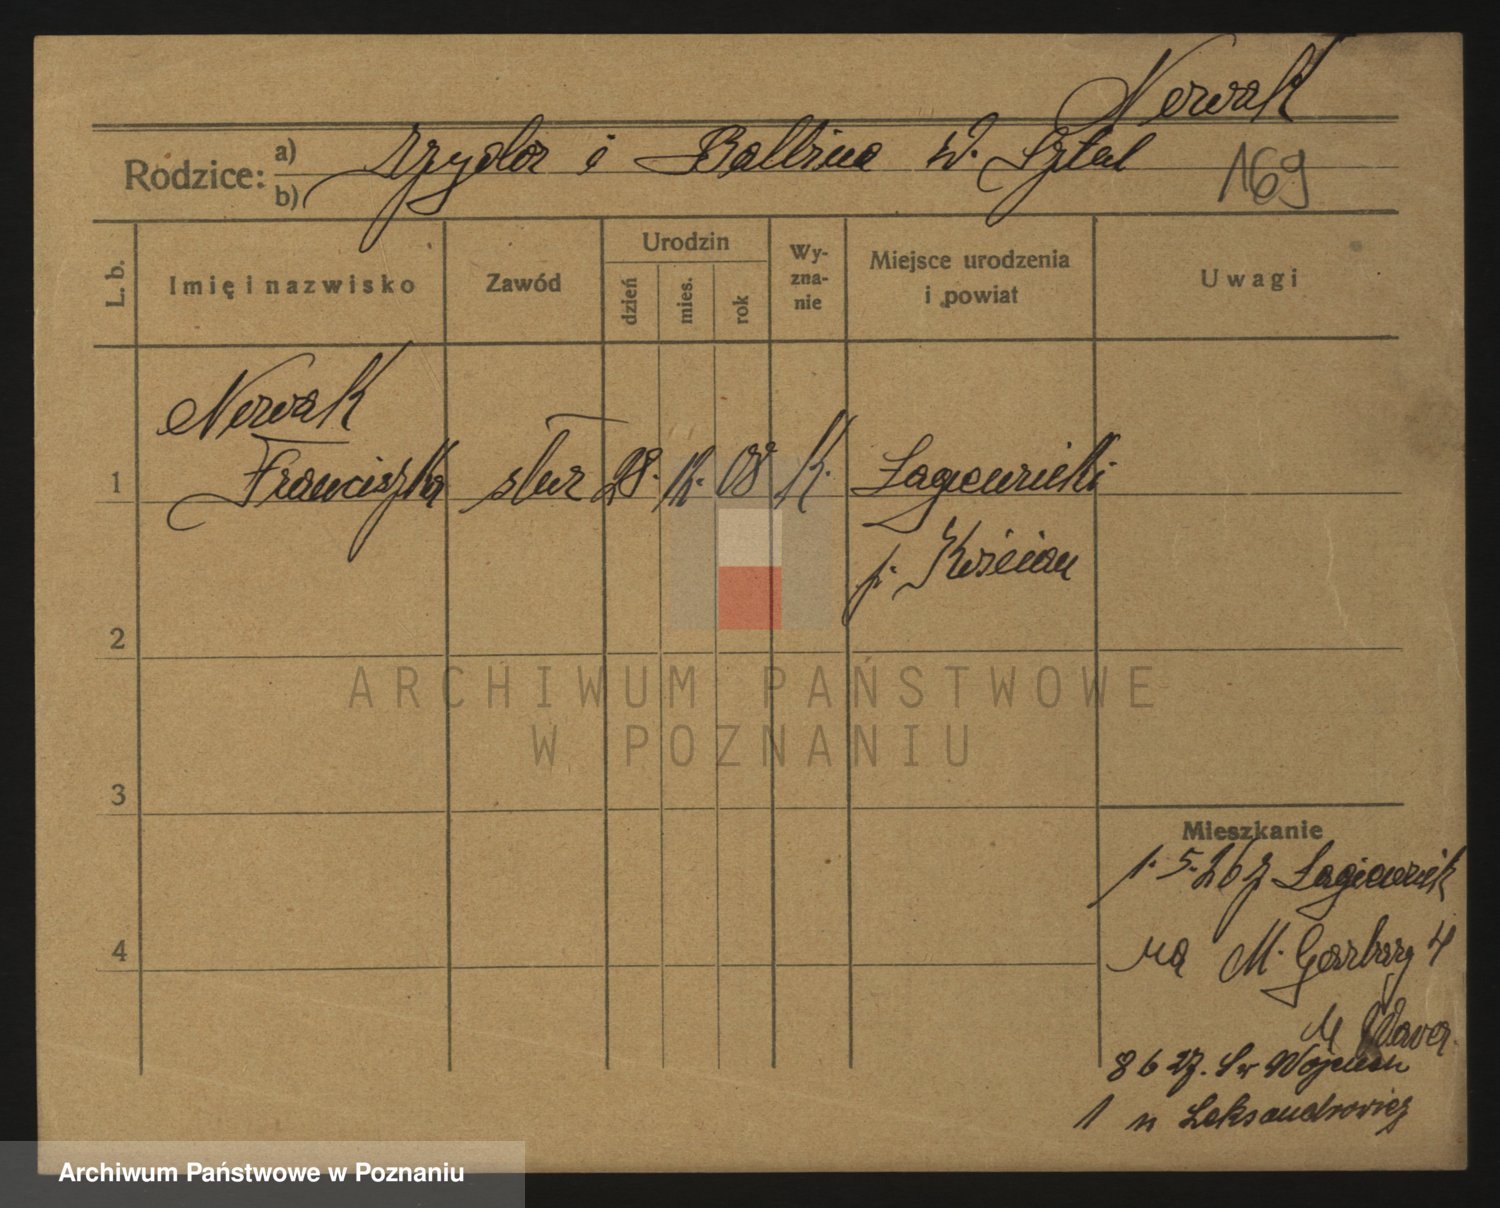 Nowak
Rodzice: a) Izydor i Balbina W. Sztul
b)
169
L. b.
Imię i nazwisko
Zawód
Urodzin
dzień
mies.
rok
Wy-
zna-
nie
Miejsce urodzenia
i powiat
Uwagi
Nowak
1 Franciszka służ 28. 08 K. Łagiewniki
p. Kościan
2
3
4
Mieszkanie
1.5.26 z Łagiewnik
na M. Garbary 4
u
8 6 27. Św Wojciech
1 u Leksandrowicz
ARCHIWUM PAŃSTWOWE
W POZNANIU
Archiwum Państwowe w Poznaniu